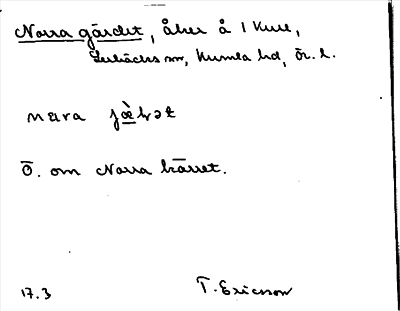 Norra gärdet, åker å 1 Kurl,
Lerbäcks sn, Kumla hd, Ör. l.
nɷra jæ̀ḷət
Ö. om Norra kärret.
17.3 T. Ericsson